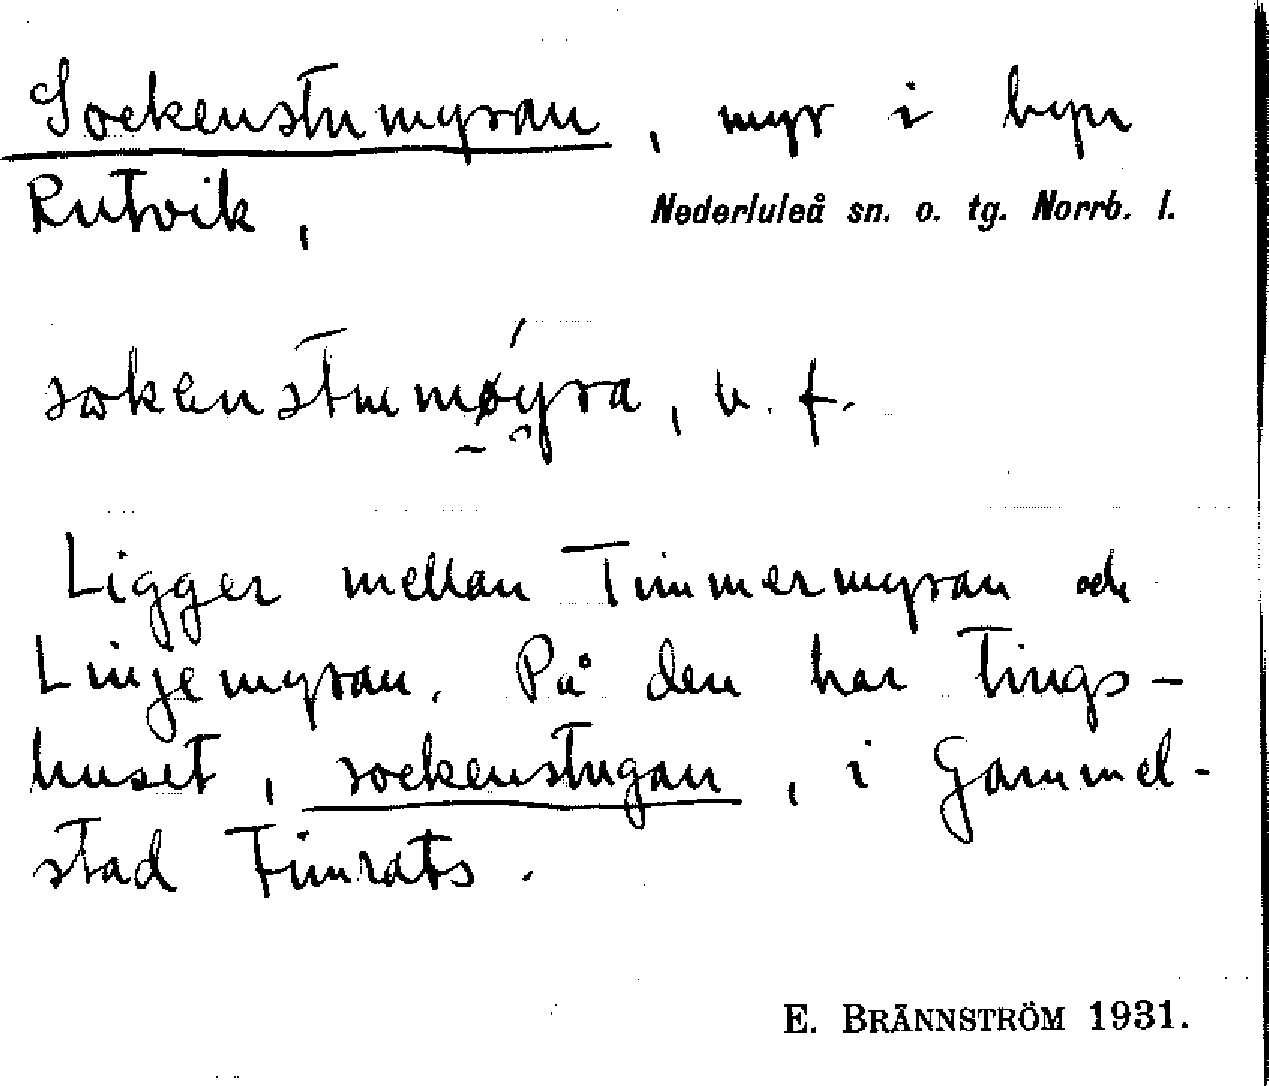 Sockenstumyran, myr i byn
Rutvik, Nederluleå sn. o. tg. Norrb. l.
sokenstumøyra, n. f.
Ligger mellan Timmermyran och
Linjemyran. På den har Tings-
huset, sockenstugan, i Gammel-
stad timrats.
E. BRÄNNSTRÖM 1931.